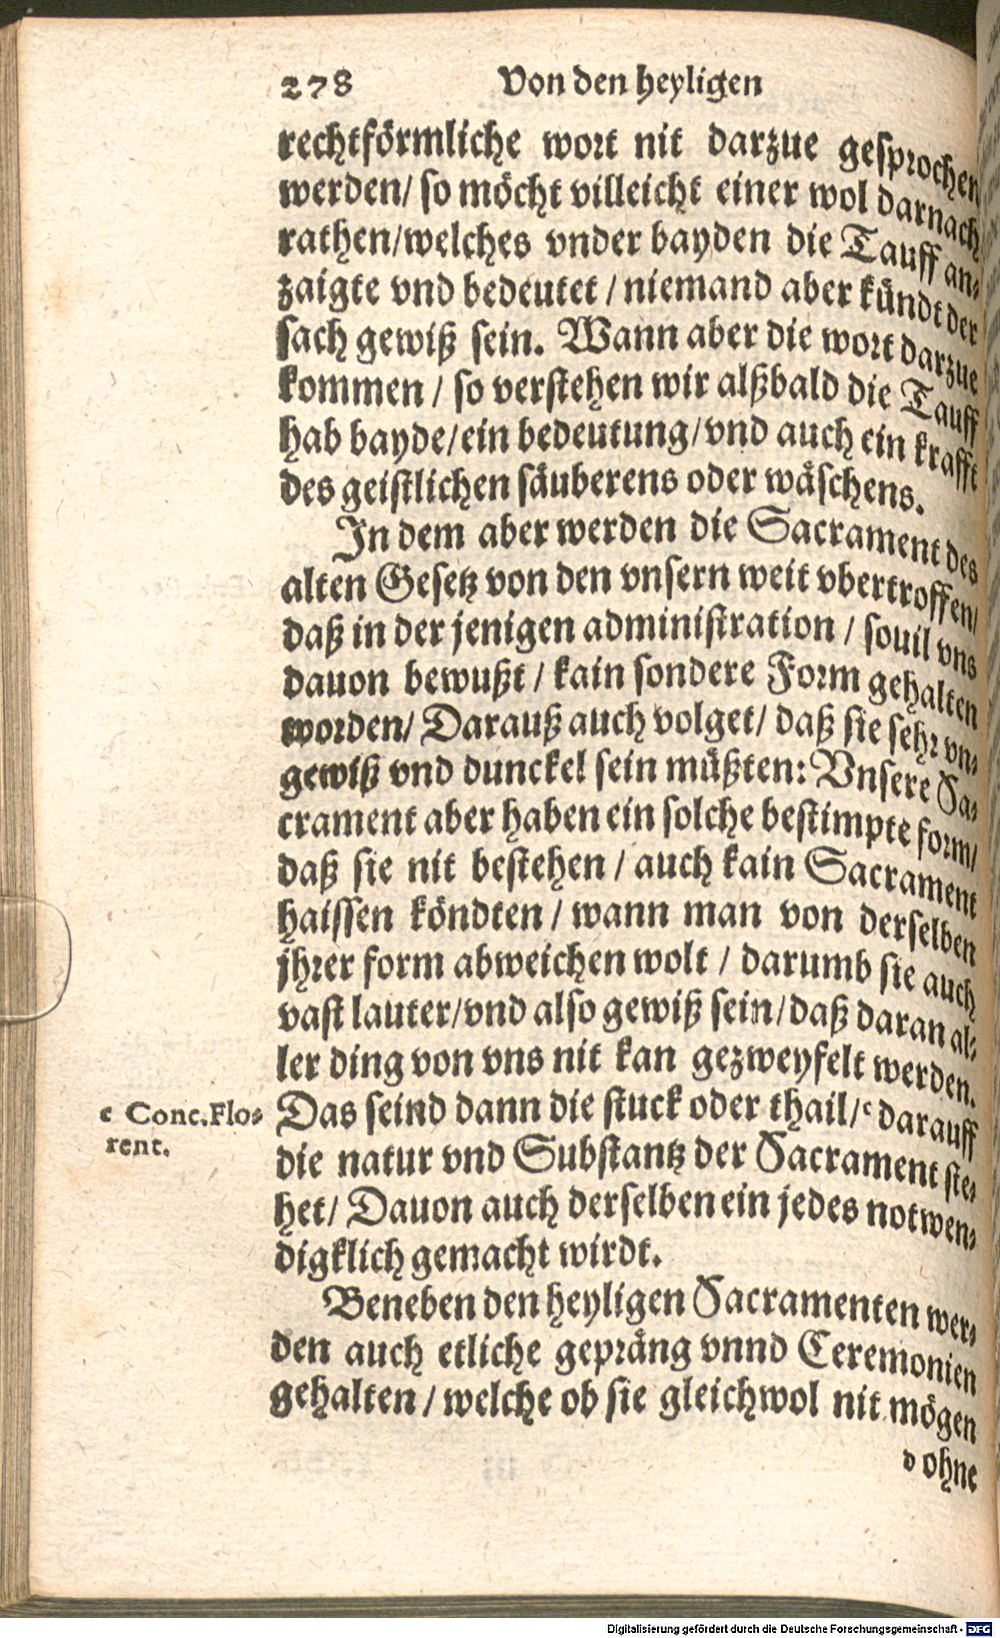 278 Von den heyligen
rechtförmliche wort nit darzue gesprochen
werden/ so möcht villeicht einer wol darnach
rathen/welches vnder bayden die Tauff an⸗
zaigte vnd bedeutet / niemand aber kündt der
sach gewiß sein. Wann aber die wort darzue
kommen / so verstehen wir alßbald die Tauff
hab bayde/ein bedeutung/vnd auch ein krafft
des geistlichen säuberens oder wäschens.
In dem aber werden die Sacrament des
alten Gesetz von den vnsern weit vbertroffen/
daß in der jenigen administration / souil vns
dauon bewußt / kain sondere Form gehalten
worden/ Darauß auch volget/ daß sie sehr vn⸗
gewiß vnd dunckel sein müßten: Vnsere Sa⸗
crament aber haben ein solche bestimpte form/
daß sie nit bestehen / auch kain Sacrament
haissen köndten / wann man von derselben
jhrer form abweichen wolt / darumb sie auch
vast lauter/vnd also gewiß sein/daß daran al⸗
ler ding von vns nit kan gezweyfelt werden.
c Conc.Flo⸗
rent.
Das seind dann die stuck oder thail/ᶜ darauff
die natur vnd Substantz der Sacrament ste⸗
het/ Dauon auch derselben ein jedes notwen⸗
digklich gemacht wirdt.
Beneben den heyligen Sacramenten wer⸗
den auch etliche gepräng vnnd Ceremonien
gehalten / welche ob sie gleichwol nit mögen
d ohne
Digitalisierung gefördert durch die Deutsche Forschungsgemeinschaft - DFG